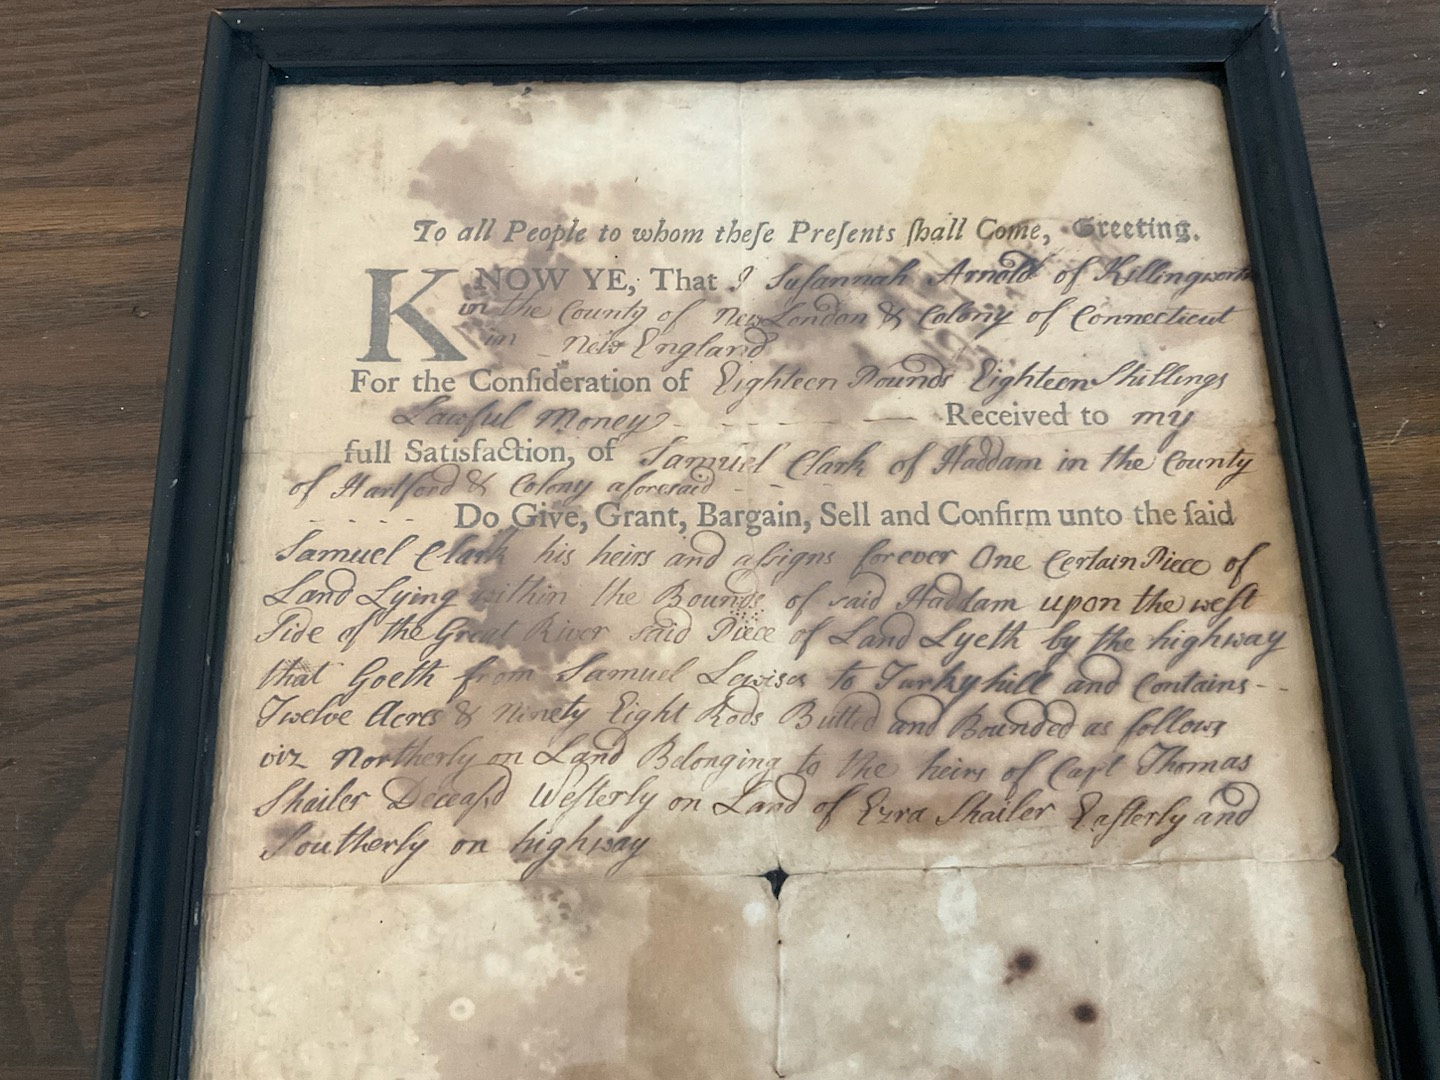 To all People to whom theſe Preſents ſhall Come, Greeting.
KNOW YE, That I Suſannah Arnold of Killingworth
in the County of New London & Colony of Connecticut
in New England
For the Conſideration of Eighteen Pounds Eighteen Shillings
Lawful Money - - - - - — Received to my
full Satisfaction, of Samuel Clark of Haddam in the County
of Hartford & Colony aforesaid - - - -
- - - - - Do Give, Grant, Bargain, Sell and Confirm unto the ſaid
Samuel Clark his heirs and aſsigns forever One Certain Piece of
Land Lying within the Bounds of said Haddam upon the weſt
Side of the Great River said Piece of Land Lyeth by the highway
that Goeth from Samuel Lewises to Turkyhill and Contains - -
Twelve Acres & Ninety Eight Rods Butted and Bounded as follows
viz Northerly on Land Belonging to the heirs of Capt Thomas
Shailer Deceaſd Weſterly on Land of Ezra Shailer Eaſterly and
Southerly on highway